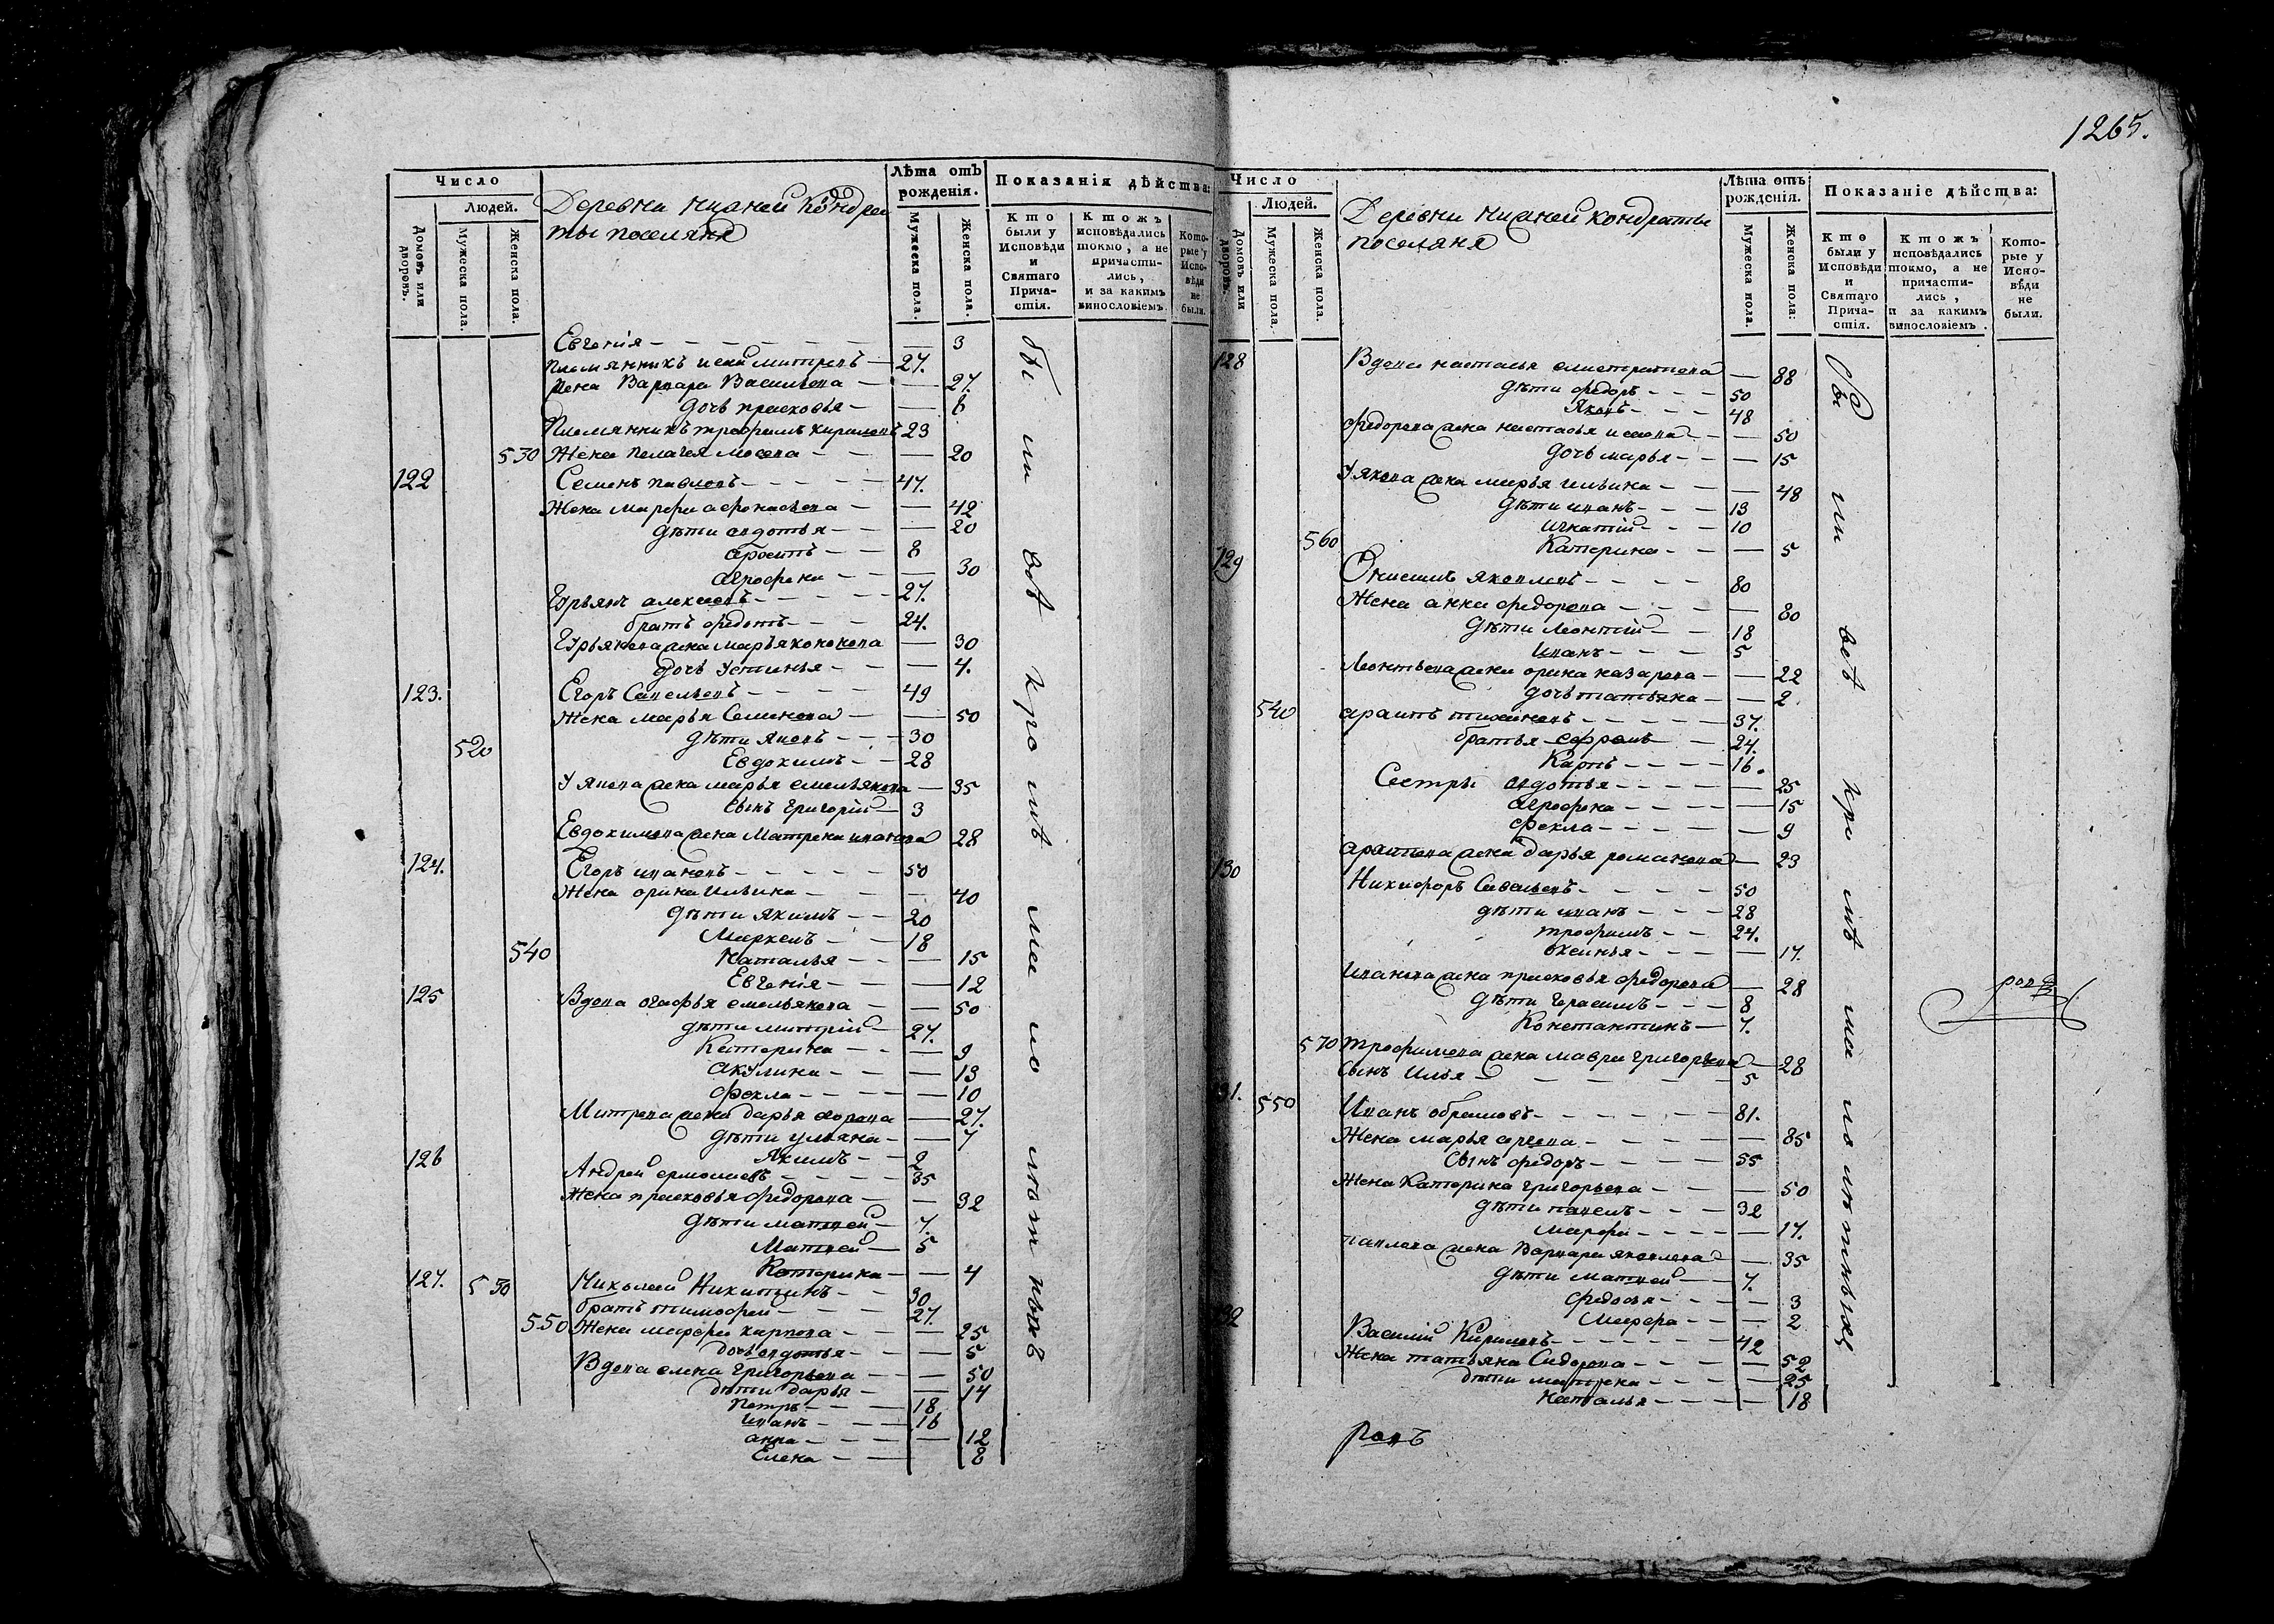 Число
Людей.
Домовъ или дворовъ.
Мужеска пола.
Женска пола.
Деревни нижней Кондра
ты поселяня
Лѣта отъ рожденія.
Мужеска пола.
Женска пола.
Показанія дѣйства:
Кто были у Исповѣди и Святаго Прича- стія.
Ктожъ исповѣдались токмо, а не причасти- лись, и за какимъ винословіемъ.
Кото- рые у Испо- вѣди не были.
Евгенія 3
племянникъ исай митревъ 27.
жена Варвара Васильева 27.
дочь прасковья 8
племянникъ трофимъ кириловъ 23
530 Жена пелагея мосева 20
122 Семенъ павловъ 47.
Жена марфа афонасьева 42
дѣти авдотья 20
8
аграфена 30
Гурьянъ алексеевъ 27.
братъ федотъ 24.
Гурьянова жена марья кононова 30
дочь Устинья 4.
123. Егоръ Савельевъ 49
Жена марья Семенова 50
дѣти яковъ 30
520 Евдокимъ 28
У якова жена марья емельянова 35
сынъ григорій 3
Евдокимова жена матрена иванова 28
124. Егоръ ивановъ 50
Жена орина Ильина 40
дѣти якимъ 20
Маркелъ 18
540 Наталья 15
Евгенія 12
125 Вдова огафья емельянова 50
дѣти митрій 27.
Катерина 9
акулина 13
фекла 10
Митрева жена дарья 27.
дѣти ульяна 7
якимъ 2
126 Андрей ермолаевъ 35
Жена прасковья федорова 32
дѣти матвей 7.
Матвей 5
Катерина 4
127. 530 Николай Никитинъ 30
братъ тимофей 27.
550 Жена марфа карпова 25
дочь авдотья 5
Вдова елена григорьева 50
дѣти дарья 14
петръ 18
иванъ 16
анна 12
Елена 8
бы ли всѣ кро мѣ ма ло лѣт ныхъ
1265.
Число
Людей.
Домовъ или дворовъ.
Мужеска пола.
Женска пола.
Деревни нижней кондраты
поселяня
Лѣта отъ рожденія.
Мужеска пола.
Женска пола:
Показаніе дѣйства:
Кто были у Исповѣди и Святаго Прича- стія.
Ктожъ исповѣдались токмо, а не причасти- лись, и за какимъ винословіемъ.
Кото- рые у Испо- вѣди не были.
128 Вдова наталья елистратова 88
дѣти федоръ 50
яковъ 48
федорова жена настасья исаева 50
дочь марья 15
У якова жена марья ильина 48
дѣти иванъ 13
игнатій 10
560 Катерина 5
129 Онисимъ яковлевъ 80
Жена анна федорова 80
дѣти леонтій 18
иванъ 5
леонтьева жена орина назарова 22
дочь татьяна 2
540 архипъ тихоновъ 37.
братья софронъ 24.
Карпъ 16.
Сестры авдотья 25
аграфена 15
фекла 9
архипова жена дарья романова 23
130 Никифоръ Савельевъ 50
дѣти иванъ 28
трофимъ 24.
оксинья 17.
Иванова жена прасковья федорова 28
дѣти герасимъ 8
Константинъ 7.
570 трофимова жена мавра григорьева 28
сынъ Илья 5
131. 550 Иванъ обрамовъ 81.
Жена марья 85
сынъ федоръ 55
Жена Катерина григорьева 50
дѣти павелъ 32
марфа 17.
павлова жена варвара яковлева 35
дѣти матвей 7.
федосья 3
марфа 2
132 Василій Кириловъ 42
Жена татьяна Сидорова 52
дѣти матрена 25
Наталья 18
бы ли всѣ кро мѣ ма ло лѣтныхъ